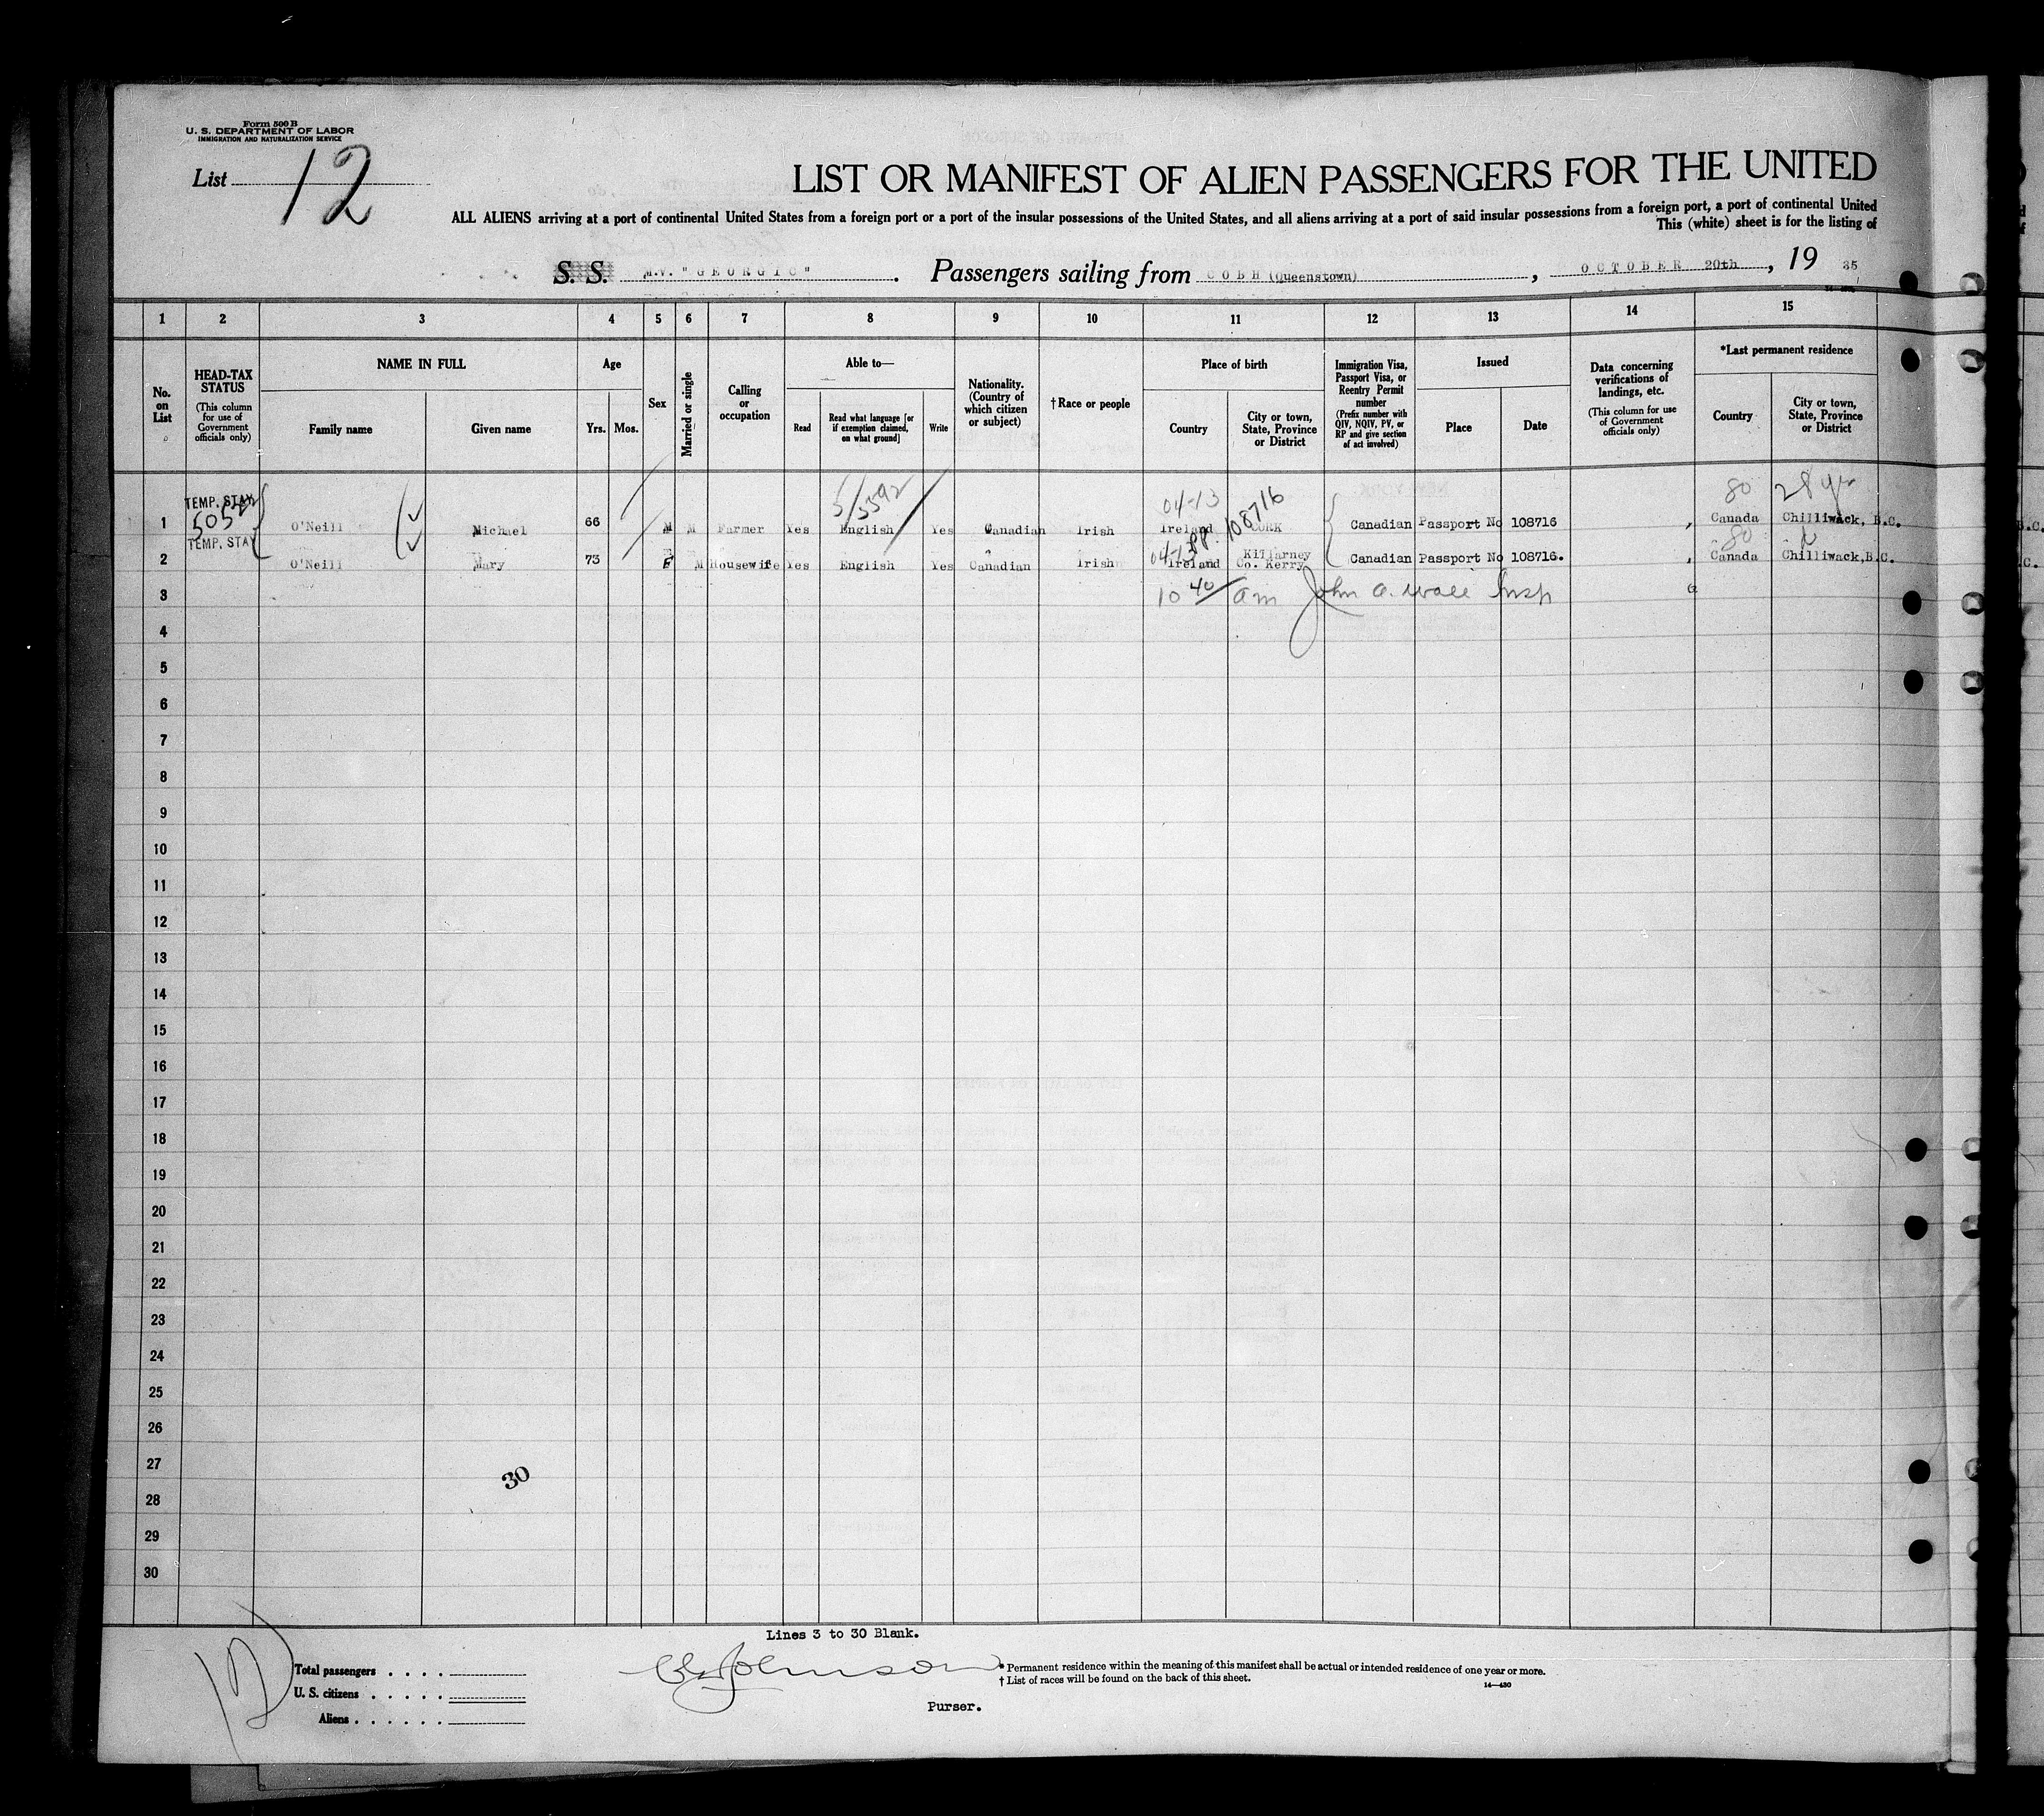 Form 500 B
U. S. DEPARTMENT OF LABOR
IMMIGRATION AND NATURALIZATION SERVICE
List 12
LIST OR MANIFEST OF ALIEN PASSENGERS FOR THE UNITED
ALL ALIENS arriving at a port of continental United States from a foreign port or a port of the insular possessions of the United States, and all aliens arriving at a port of said insular possessions from a foreign port, a port of continental United
This (white) sheet is for the listing of
S. S. M.V. "GEORGIC". Passengers sailing from COBH (Queenstown), OCTOBER 20th, 19 35
1 2 3 4 5 6 7 8 9 10 11 12 13 14 15
No. on List
HEAD-TAX STATUS
(This column for use of Government officials only)
NAME IN FULL
Family name
Given name
Age
Yrs.
Mos.
Sex
Married or single
Calling or occupation
Able to—
Read
Read what language [or if exemption claimed, on what ground]
Write
Nationality. (Country of which citizen or subject)
†Race or people
Place of birth
Country
City or town, State, Province or District
Immigration Visa, Passport Visa, or Reentry Permit number
(Prefix number with QIV, NQIV, PV, or RP and give section of act involved)
Issued
Place
Date
Data concerning verifications of landings, etc.
(This column for use of Government officials only)
*Last permanent residence
Country
City or town, State, Province or District
TEMP. STAY 5/3592 04-13 80 28 yr
1 O'Neill Michael 66 M M Farmer Yes English Yes Canadian Irish Ireland CORK Canadian Passport No 108716 , Canada Chilliwack, B.C.
PP. 108716
TEMP. STAY 04-13 80
2 O'Neill Mary 73 F M Housewife Yes English Yes Canadian Irish Ireland Killarney Co. Kerry Canadian Passport No 108716. , Canada Chilliwack,B.C.
3 10 40 am John A. Insp
4
5
6
7
8
9
10
11
12
13
14
15
16
17
18
19
20
21
22
23
24
25
26
27
30
28
29
30
Lines 3 to 30 Blank.
Total passengers . . . .
U. S. citizens . . . . . .
Aliens . . . . . .
Johnson
Purser.
* Permanent residence within the meaning of this manifest shall be actual or intended residence of one year or more.
† List of races will be found on the back of this sheet.
14—430
B.C.
.C.